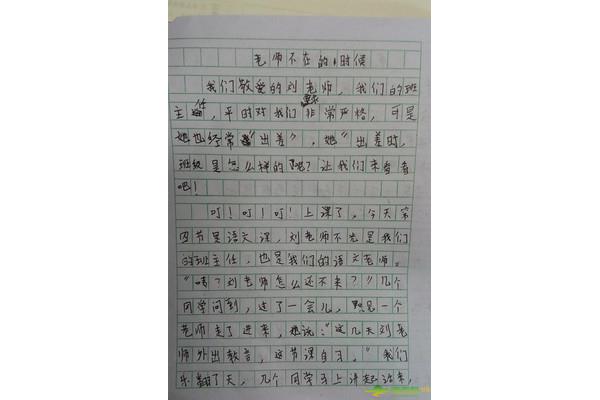 老师不在的时候
我们敬爱的刘老师，我们的班
主任，平时对我们要求非常严格，可是
她也经常“出差”，她“出差时，
班级是怎么样的呢？让我们来看看
吧！
叮！叮！叮！上课了，今天第
四节是语文课，刘老师不光是我们
的班主任，也是我们的语文老师。
“咦？刘老师怎么还不来？”几个
同学问到，过了一会儿，只见一个
老师走了进来，她说：“这几天刘老
师外出教育，这节课自习，”我们
乐翻了天，几个同学马上讲起话来，